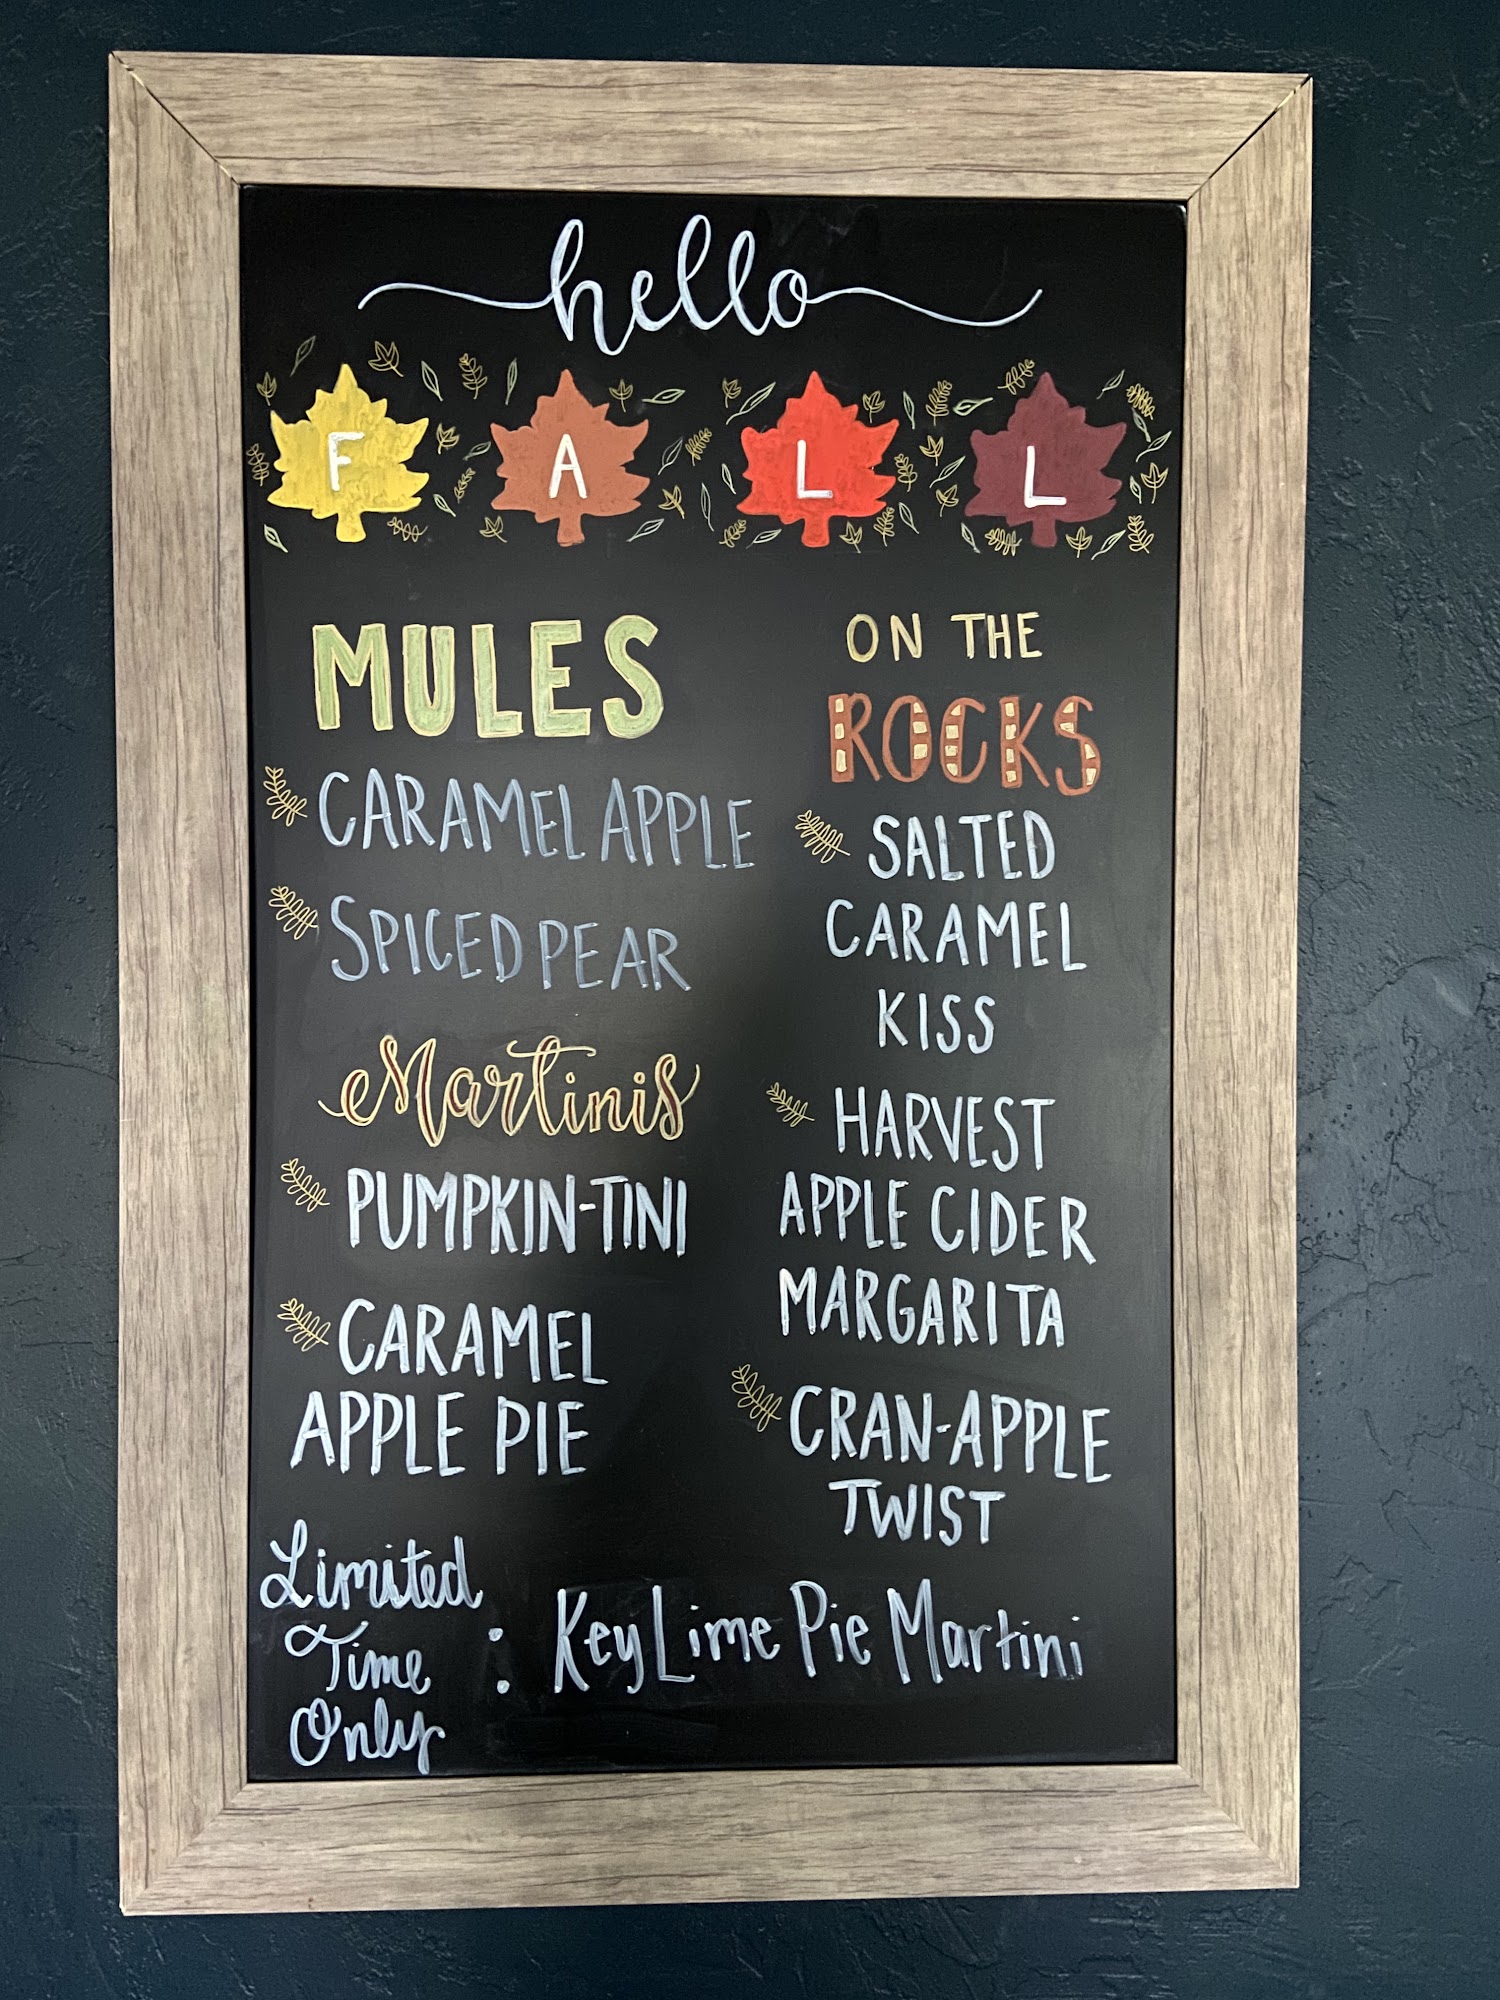 hello
FALL
MULES
CARAMEL APPLE
SPICED PEAR
Martinis
PUMPKIN-TINI
CARAMEL
APPLE PIE
ON THE
ROCKS
SALTED
CARAMEL
KISS
HARVEST
APPLE CIDER
MARGARITA
CRAN-APPLE
TWIST
Limited
Time
Only
: Key Lime Pie Martini